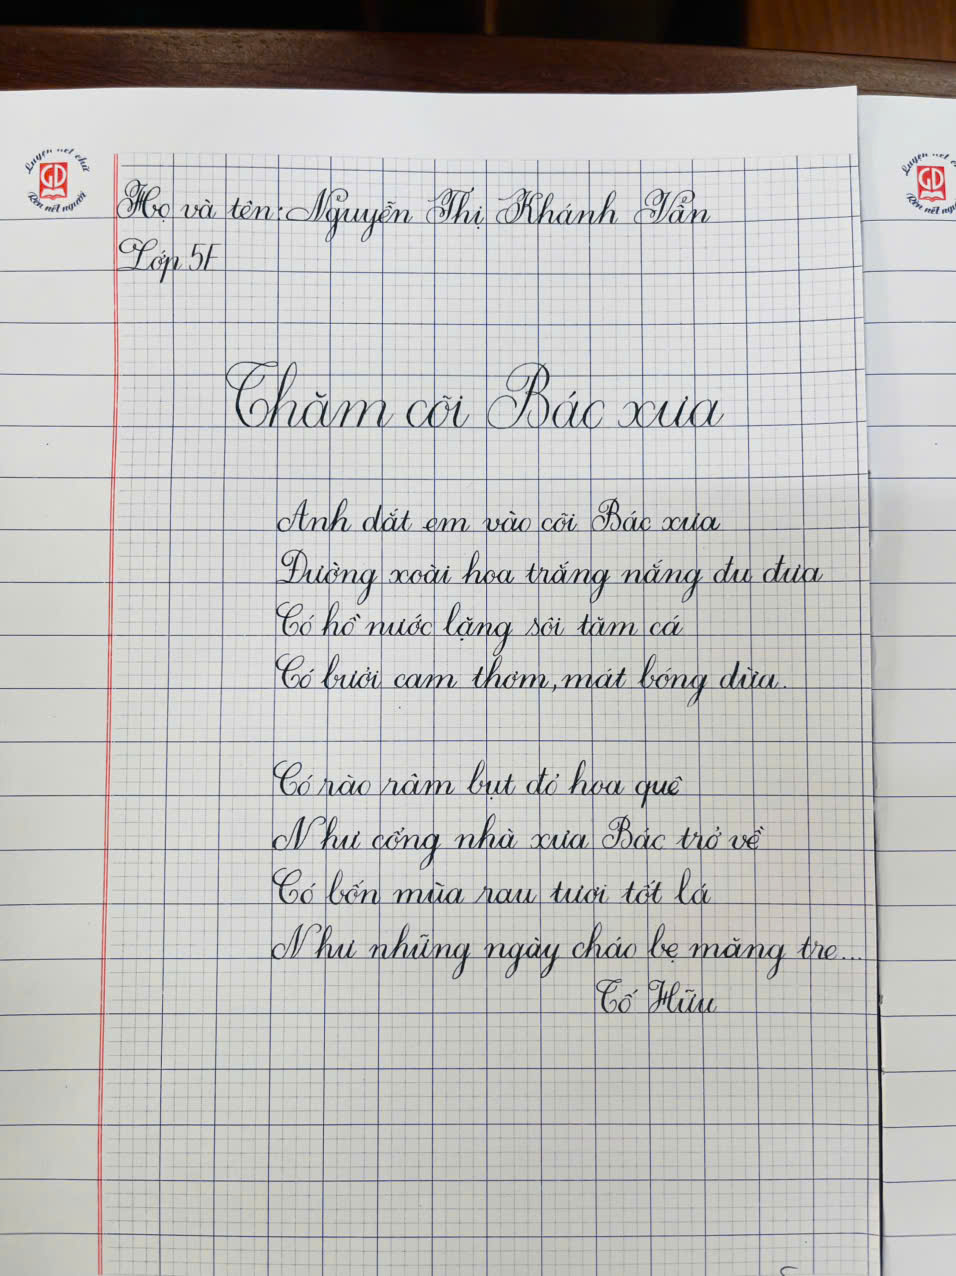 Luyện nét chữ
GD
Rèn nết người
Luyện nét
GD
Rèn nết
Họ và tên: Nguyễn Thị Khánh Vân
Lớp 5F
Thăm cõi Bác xưa
Anh dắt em vào cõi Bác xưa
Đường xoài hoa trắng nắng đu đưa
Có hồ nước lặng sôi tăm cá
Có bưởi cam thơm, mát bóng dừa.
Có rào râm bụt đỏ hoa quê
Như cổng nhà xưa Bác trở về
Có bốn mùa rau tươi tốt lá
Như những ngày cháo bẹ măng tre...
Tố Hữu